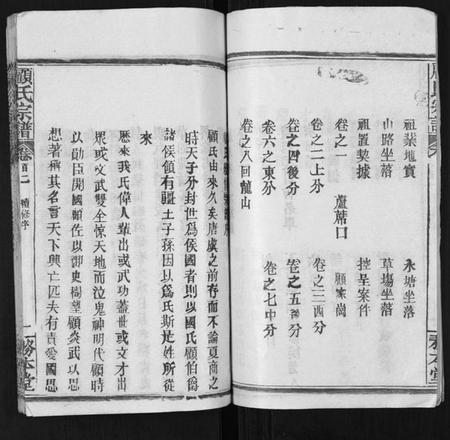 祖業地實
永塘坐落
山路坐落
草塲坐落
祖置契據
控呈案件
卷之一
蘆蓆口
顧家崗
卷之二上分
卷之三四分
卷之四後分
卷之五西分
卷六之東分
卷之七中分
卷之八回龍山
顧氏由來久矣唐虞之前存而不論夏商之
時天子分封世爲侯國者則以國氏顧伯爵
諸侯領有疆土子孫因以爲氏斯是姓所從
來
歷來我氏偉人輩出或武功蓋世或文才出
眾或文武雙全惊天地而泣鬼神明代顧時
以勛臣開國顧佐以御史樹望顧炎武以思
想著稱其名言天下興亡匹夫有責愛國思
顧氏宗譜
卷首二
續修序
一
務本堂